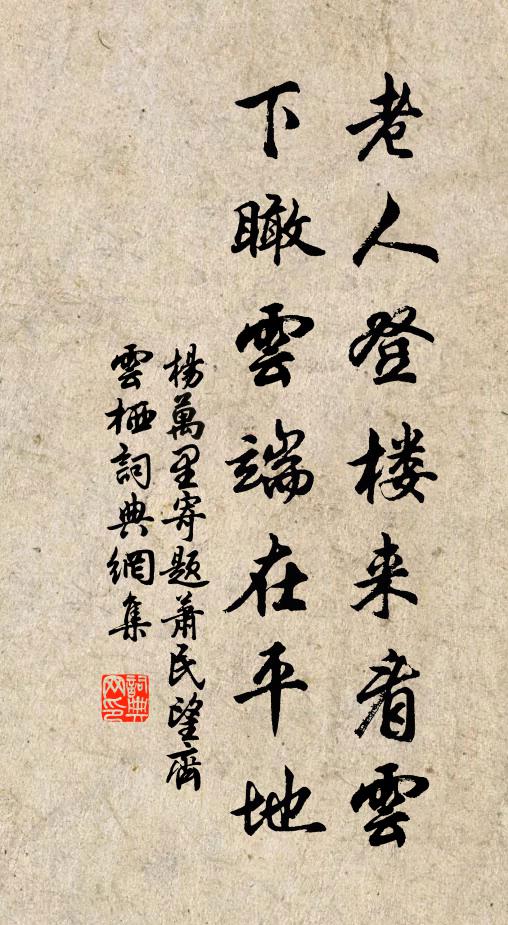 老人登楼来看雲
下瞰雲端在平地
楊萬里寄題萧民望齊
雲栖詞典網集
詞典
网印